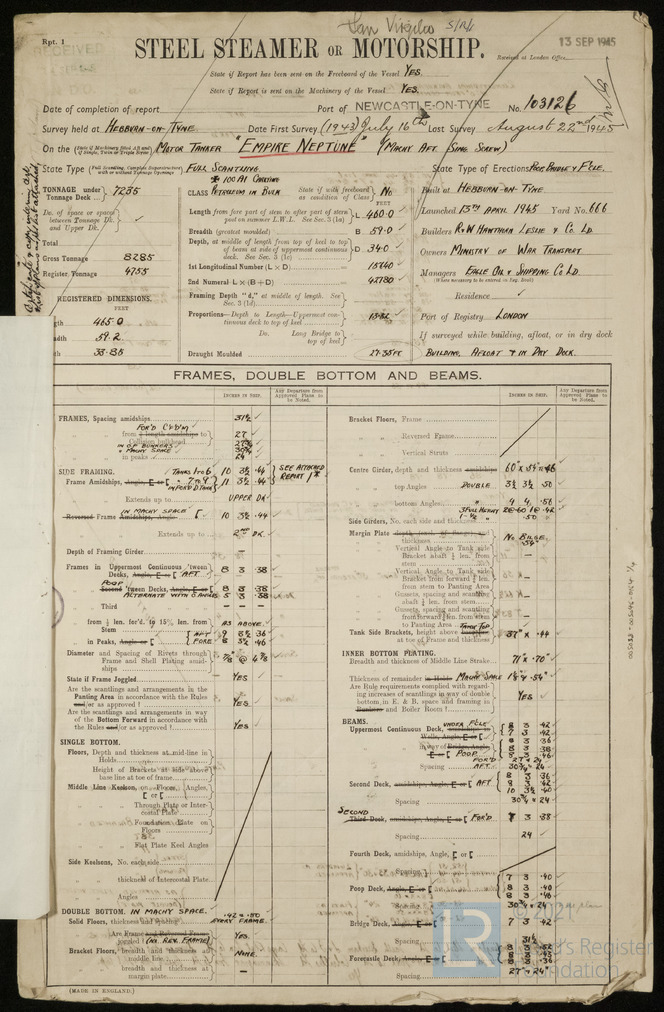 Rpt. 1
San Virgilio
RECEIVED
13 SEP 1945
STEEL STEAMER OR MOTORSHIP.
Received at London Office
State if Report has been sent on the Freeboard of the Vessel YES.
State if Report is sent on the Machinery of the Vessel YES.
Date of completion of report
Port of NEWCASTLE-ON-TYNE No. 103126
Survey held at HEBBURN-ON-TYNE Date First Survey (1943) July 16th Last Survey August 22nd 1945
On the MOTOR TANKER "EMPIRE NEPTUNE" (MACHY AFT) (SING SCREW)
State Type FULL SCANTLING State Type of Erections POOP, BRIDGE & F'CLE.
TONNAGE under Tonnage Deck 7235
Do. of space or spaces between Tonnage Dk. and Upper Dk.
Total
Gross Tonnage 8285
Register Tonnage 4755
REGISTERED DIMENSIONS.
FEET
465.0
59.2
33.85
CLASS PETROLEUM IN BULK
State if with freeboard as condition of Class No
FEET
Length from fore part of stem to after part of stern post on summer L.W.L. See Sec. 3 (1a) L 460.0
Breadth (greatest moulded) B 59.0
Depth, at middle of length from top of keel to top of beam at side of uppermost continuous deck. See Sec. 3 (1c) D 34.0
1st Longitudinal Number (L × D) 15640
2nd Numeral L × (B + D) 42780
Framing Depth "d," at middle of length. See Sec. 3 (1d)
Proportions—Depth to Length—Uppermost continuous deck to top of keel
Do. Long Bridge to top of keel
Draught Moulded 27.35 FT
Built at HEBBURN-ON-TYNE
Launched 13TH APRIL 1945 Yard No. 666
Builders R & W HAWTHORN LESLIE & CO LD.
Owners MINISTRY OF WAR TRANSPORT
Managers EAGLE OIL & SHIPPING CO LD.
Residence
Port of Registry LONDON
If surveyed while building, afloat, or in dry dock
BUILDING, AFLOAT & IN DRY DOCK.
FRAMES, DOUBLE BOTTOM AND BEAMS.
INCHES IN SHIP.
Any Departure from Approved Plans to be Noted.
INCHES IN SHIP.
Any Departure from Approved Plans to be Noted.
FRAMES, Spacing amidships 31½
in peaks 24
SIDE FRAMING. TANKS 1 TO 6 10 3½ .44
SEE ATTACHED REPORT 1*
Frame Amidships, Angle, [ or [
Extends up to UPPER DK
IN MACHY SPACE
Reversed Frame Amidships, Angle 10 3½ .44
Extends up to 2ND DK
Depth of Framing Girder —
Frames in Uppermost Continuous 'tween Decks, Angle, [ or [ AFT 8 3 .38
POOP
Second 'tween Decks, Angle, [ or [ 8 3 .38
Third — — —
from ⅕ len. for'd. to 15% len. from Stem AS ABOVE.
in Peaks, Angle or [ AFT 9 3½ .36
FORE 8 3½ .46
Diameter and Spacing of Rivets through Frame and Shell Plating amidships
State if Frame Joggled YES
Are the scantlings and arrangements in the Panting Area in accordance with the Rules and/or as approved ? YES
Are the scantlings and arrangements in way of the Bottom Forward in accordance with the Rules and/or as approved ? YES
SINGLE BOTTOM.
Floors, Depth and thickness at mid-line in Holds
Height of Brackets at side above base line at toe of frame
Middle Line Keelson, on Floors, Angles, [ or [
Through Plate or Intercostal Plate
Foundation Plate on Floors
Flat Plate Keel Angles
Side Keelsons, No. each side
thickness of Intercostal Plate
Angles
DOUBLE BOTTOM. IN MACHY SPACE.
Solid Floors, thickness and spacing .42 & .50 EVERY FRAME.
Are Frame and Reversed Frame joggled ? (NO REV. FRAME) YES.
Bracket Floors, breadth and thickness at middle line NONE.
breadth and thickness at margin plate —
Bracket Floors, Frame
Reversed Frame
Vertical Struts
Centre Girder, depth and thickness amidships
top Angles DOUBLE 3½ 3½ .50
bottom Angles " 4 4 .56
Side Girders, No. each side and thickness
Margin Plate depth (excl. of flange) and thickness
Vertical Angle to Tank side Bracket abaft ¼ len. from stem
Vertical Angle to Tank side Bracket from forward ¼ len. from stem to Panting Area
Gussets, spacing and scantling abaft ¼ len. from stem
Gussets, spacing and scantling from forward ¼ len. from stem to Panting Area
Tank Side Brackets, height above TANK TOP at toe of Frame and thickness 37" x .44
INNER BOTTOM PLATING.
Breadth and thickness of Middle Line Strake 71" x .70"
Thickness of remainder in Holds MACHY SPACE
Are Rule requirements complied with regarding increases of scantlings in way of double bottom, in E. & B. space and framing in Bunkers and Boiler Room ? YES
BEAMS.
Uppermost Continuous Deck, UNDER F'CLE 8 3 .42
7 3 .42
in way of Bridge, Angle, [ or [ POOP
Spacing
Second Deck, amidships, Angle, [ or [ AFT
Spacing 30¾ & 24
SECOND
Third Deck, amidships, Angle, [ or [ FOR'D 7 3 .38
Spacing 24
Fourth Deck, amidships, Angle, [ or [
Spacing
Poop Deck, Angle, [ or [ 7 3 .40
8 3 .40
Spacing 30¾ & 24
Bridge Deck, Angle, [ or [ 7 3 .42
Spacing 31½
Forecastle Deck, Angle, [ or [
Spacing 27" & 24"
(MADE IN ENGLAND.)
005033-005046-0154 1/4
LR
© 2021
Lloyd's Register
Foundation